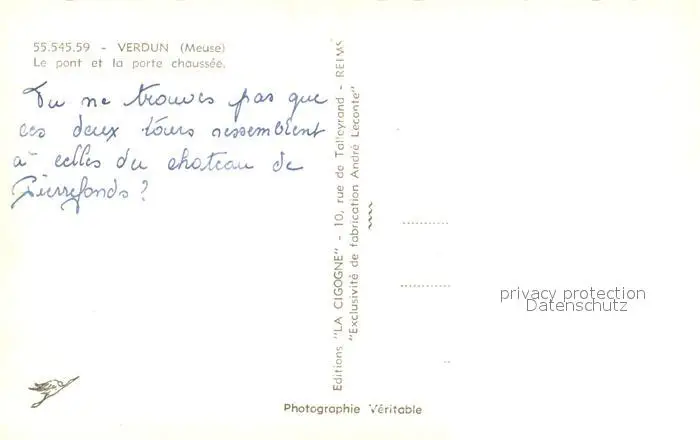 55.545.59 - VERDUN (Meuse)
Le pont et la porte chaussée.
Tu ne trouves pas que
ces deux tours ressemblent
à celles du chateau de
Pierrefonds ?
Editions "LA CIGOGNE" - 10, rue de Talleyrand - REIMS
"Exclusivité de fabrication André Leconte"
privacy protection
Datenschutz
Photographie Véritable